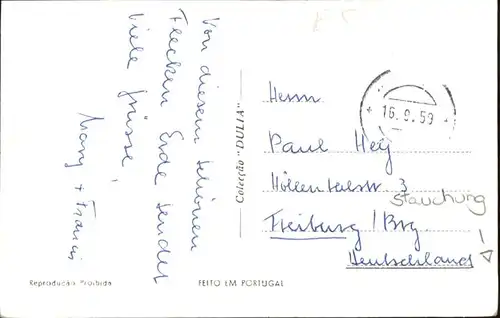 Von diesem schönen
Flecken Erde sendet
viele Grüsse
Mary + Francis
Colecção „DULIA"
Herrn
Paul Hey
Höllentalstr. 3
Freiburg / Brg.
Deutschland
16.9.59
Stauchung
Reprodução Proibida
FEITO EM PORTUGAL